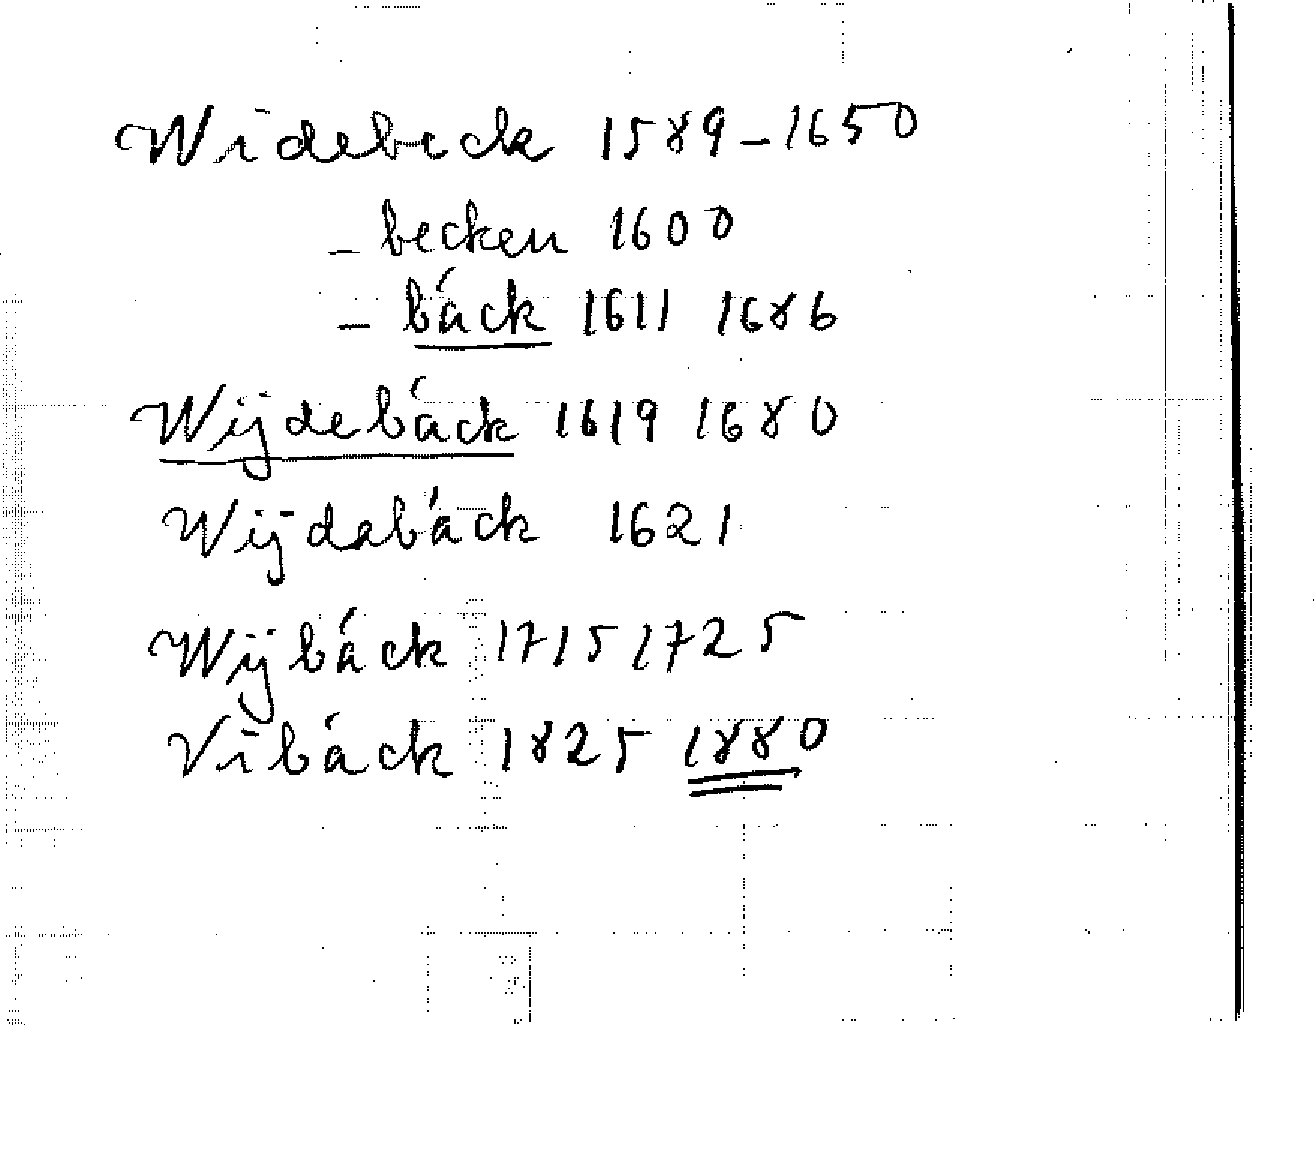 Widebeck 1589-1650
- becken 1600
- bäck 1611 1686
Wijdebäck 1619 1680
Wijdabäck 1621
Wijbäck 1715 1725
Vibäck 1825 1880